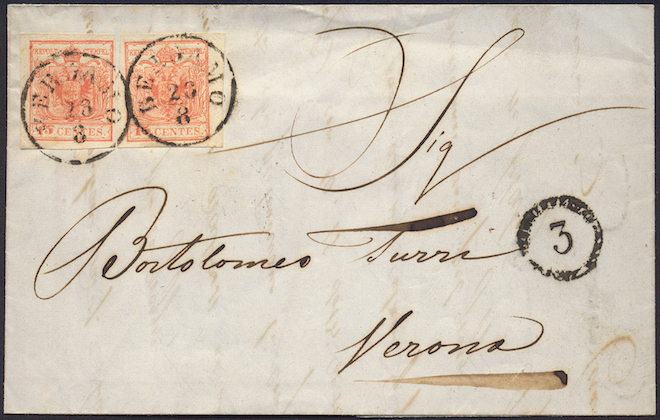 15 CENTES.
15 CENTES
BERGAMO
23
8
BERGAMO
23
8
Sig
3
Bortolomeo Turri
Verona